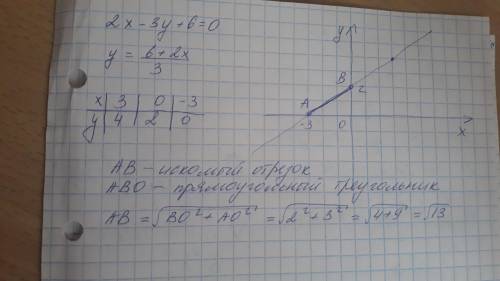 2x - 3y + 6 = 0
y = (6 + 2x)/3
x | 3 | 0 | -3
y | 4 | 2 | 0
y
B
2
A
-3
0
x
AB - искомый отрезок
ABO - прямоугольный треугольник
AB = √(BO² + AO²) = √(2² + 3²) = √(4+9) = √13